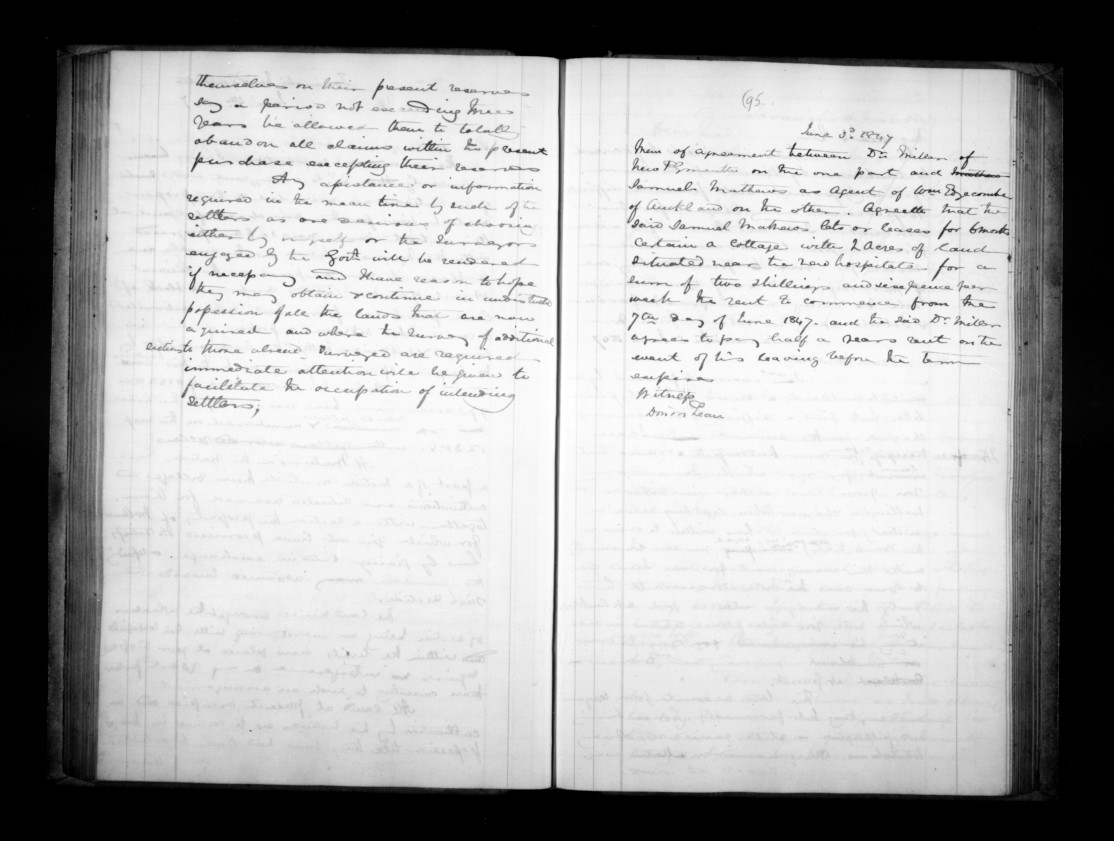 themselves on their present reserves
say a period not exceeding three
years be allowed them to totally
abandon all claims within the present
purchase excepting their reserves
Any assistance or information
required in the mean time by such of the
settlers as are desirous of choosing
either by myself or the Surveyors
engaged by the Govt. will be rendered
if necessary and I have reason to hope
they may obtain & continue in undisturbed
possession of all the lands that are now
acquired and where the Survey of additional
sections to those already surveyed are required
immediate attention will be given to
facilitate the occupation of intending
settlers,
(95.
June 3d. 1847
Mem of agreement between Dr. Miller of
New Plymouth on the one part and Mathews
Samuel Mathews as Agent of Wm Edgecombe
of Auckland on the other. Agreeth that the
said Samuel Mathews lets or leases for 6 months
certain a Cottage with 2 Acres of land
situated near the new hospitals for a
sum of two shillings and sixpence per
week the rent to commence from the
7th day of June 1847. and the said Dr. Miller
agrees to pay half a years rent on the
event of his leaving before the term
expires
Witness
Donors Lean